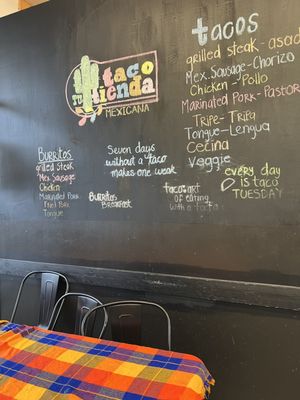 taco
tu
tienda
MEXICANA
tacos
grilled steak - asad
Mex. Sausage - Chorizo
Chicken - Pollo
Marinated Pork - Pastor
Tripe - Tripa
Tongue - Lengua
Cecina
Veggie
every day
is taco
TUESDAY
Seven days
without a taco
makes one weak
Burritos
grilled steak
Mex. Sausage
Chicken
Marinated Pork
Fried Pork
Tongue
Burritos
Breakfast
tacos: art
of eating
with a